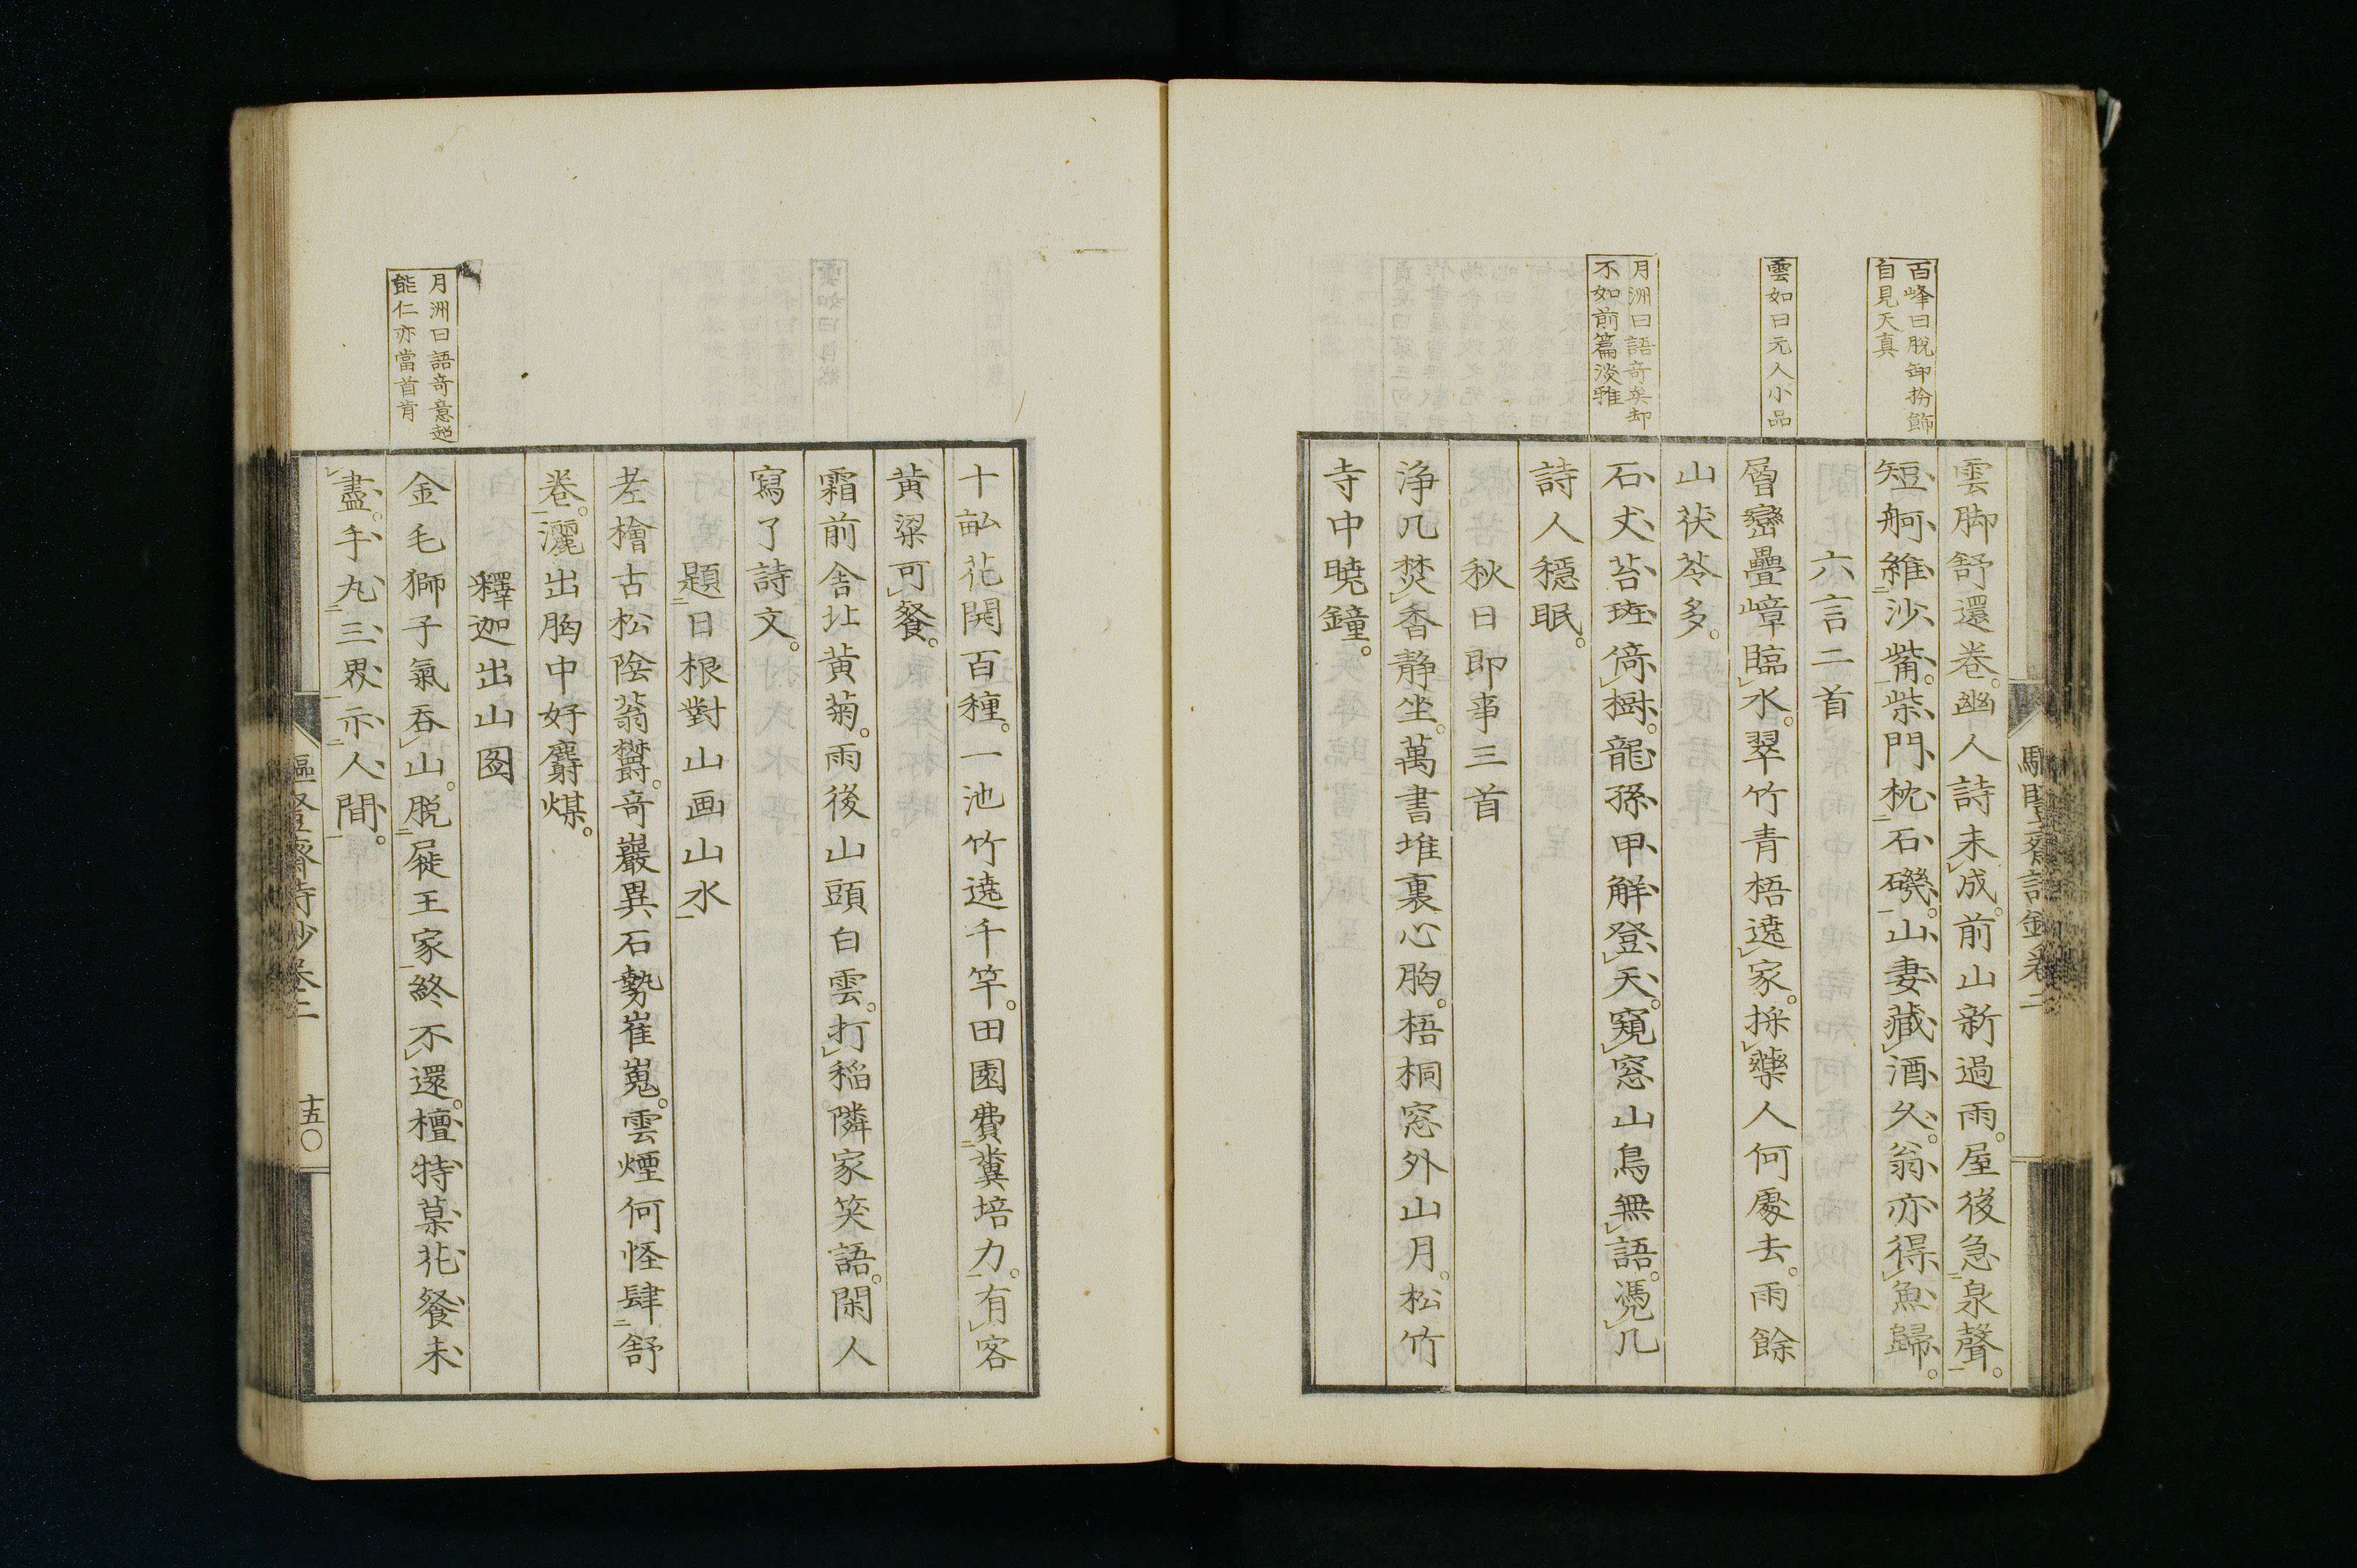 百峰曰脫卸扮飾
自見天真
雲如曰元人小品
月洲曰語奇矣却
不如前篇淡雅
雲脚舒還巻。幽人詩未成。前山新過雨。屋後急泉聲。
短舸維沙觜。柴門枕石磯。山妻藏酒久。翁亦得魚歸。
六言二首
層巒疊嶂臨水。翠竹青梧遶家。採藥人何處去。雨餘
山茯苓多。
石丈苔斑倚樹。龍孫甲解登天。窺窓山鳥無語。憑几
詩人穩眠。
秋日即事三首
浄几焚香靜坐。萬書堆裏心胸。梧桐窓外山月。松竹
寺中曉鐘。
月洲曰語奇意超
能仁亦當首肯
十畝花開百種。一池竹遶千竿。田園費糞培力。有客
黄粱可餐。
霜前舍北黄菊。雨後山頭白雲。打稲隣家笑語。閑人
寫了詩文。
題日根對山画山水
老檜古松陰蓊鬱。奇巖異石勢崔嵬。雲煙何怪肆舒
巻。灑出胸中好麝煤。
釋迦出山図
金毛獅子氣呑山。脱屣王家終不還。檀特菓花餐未
盡。手丸三界示人間。
齋詩鈔巻二
十五〇